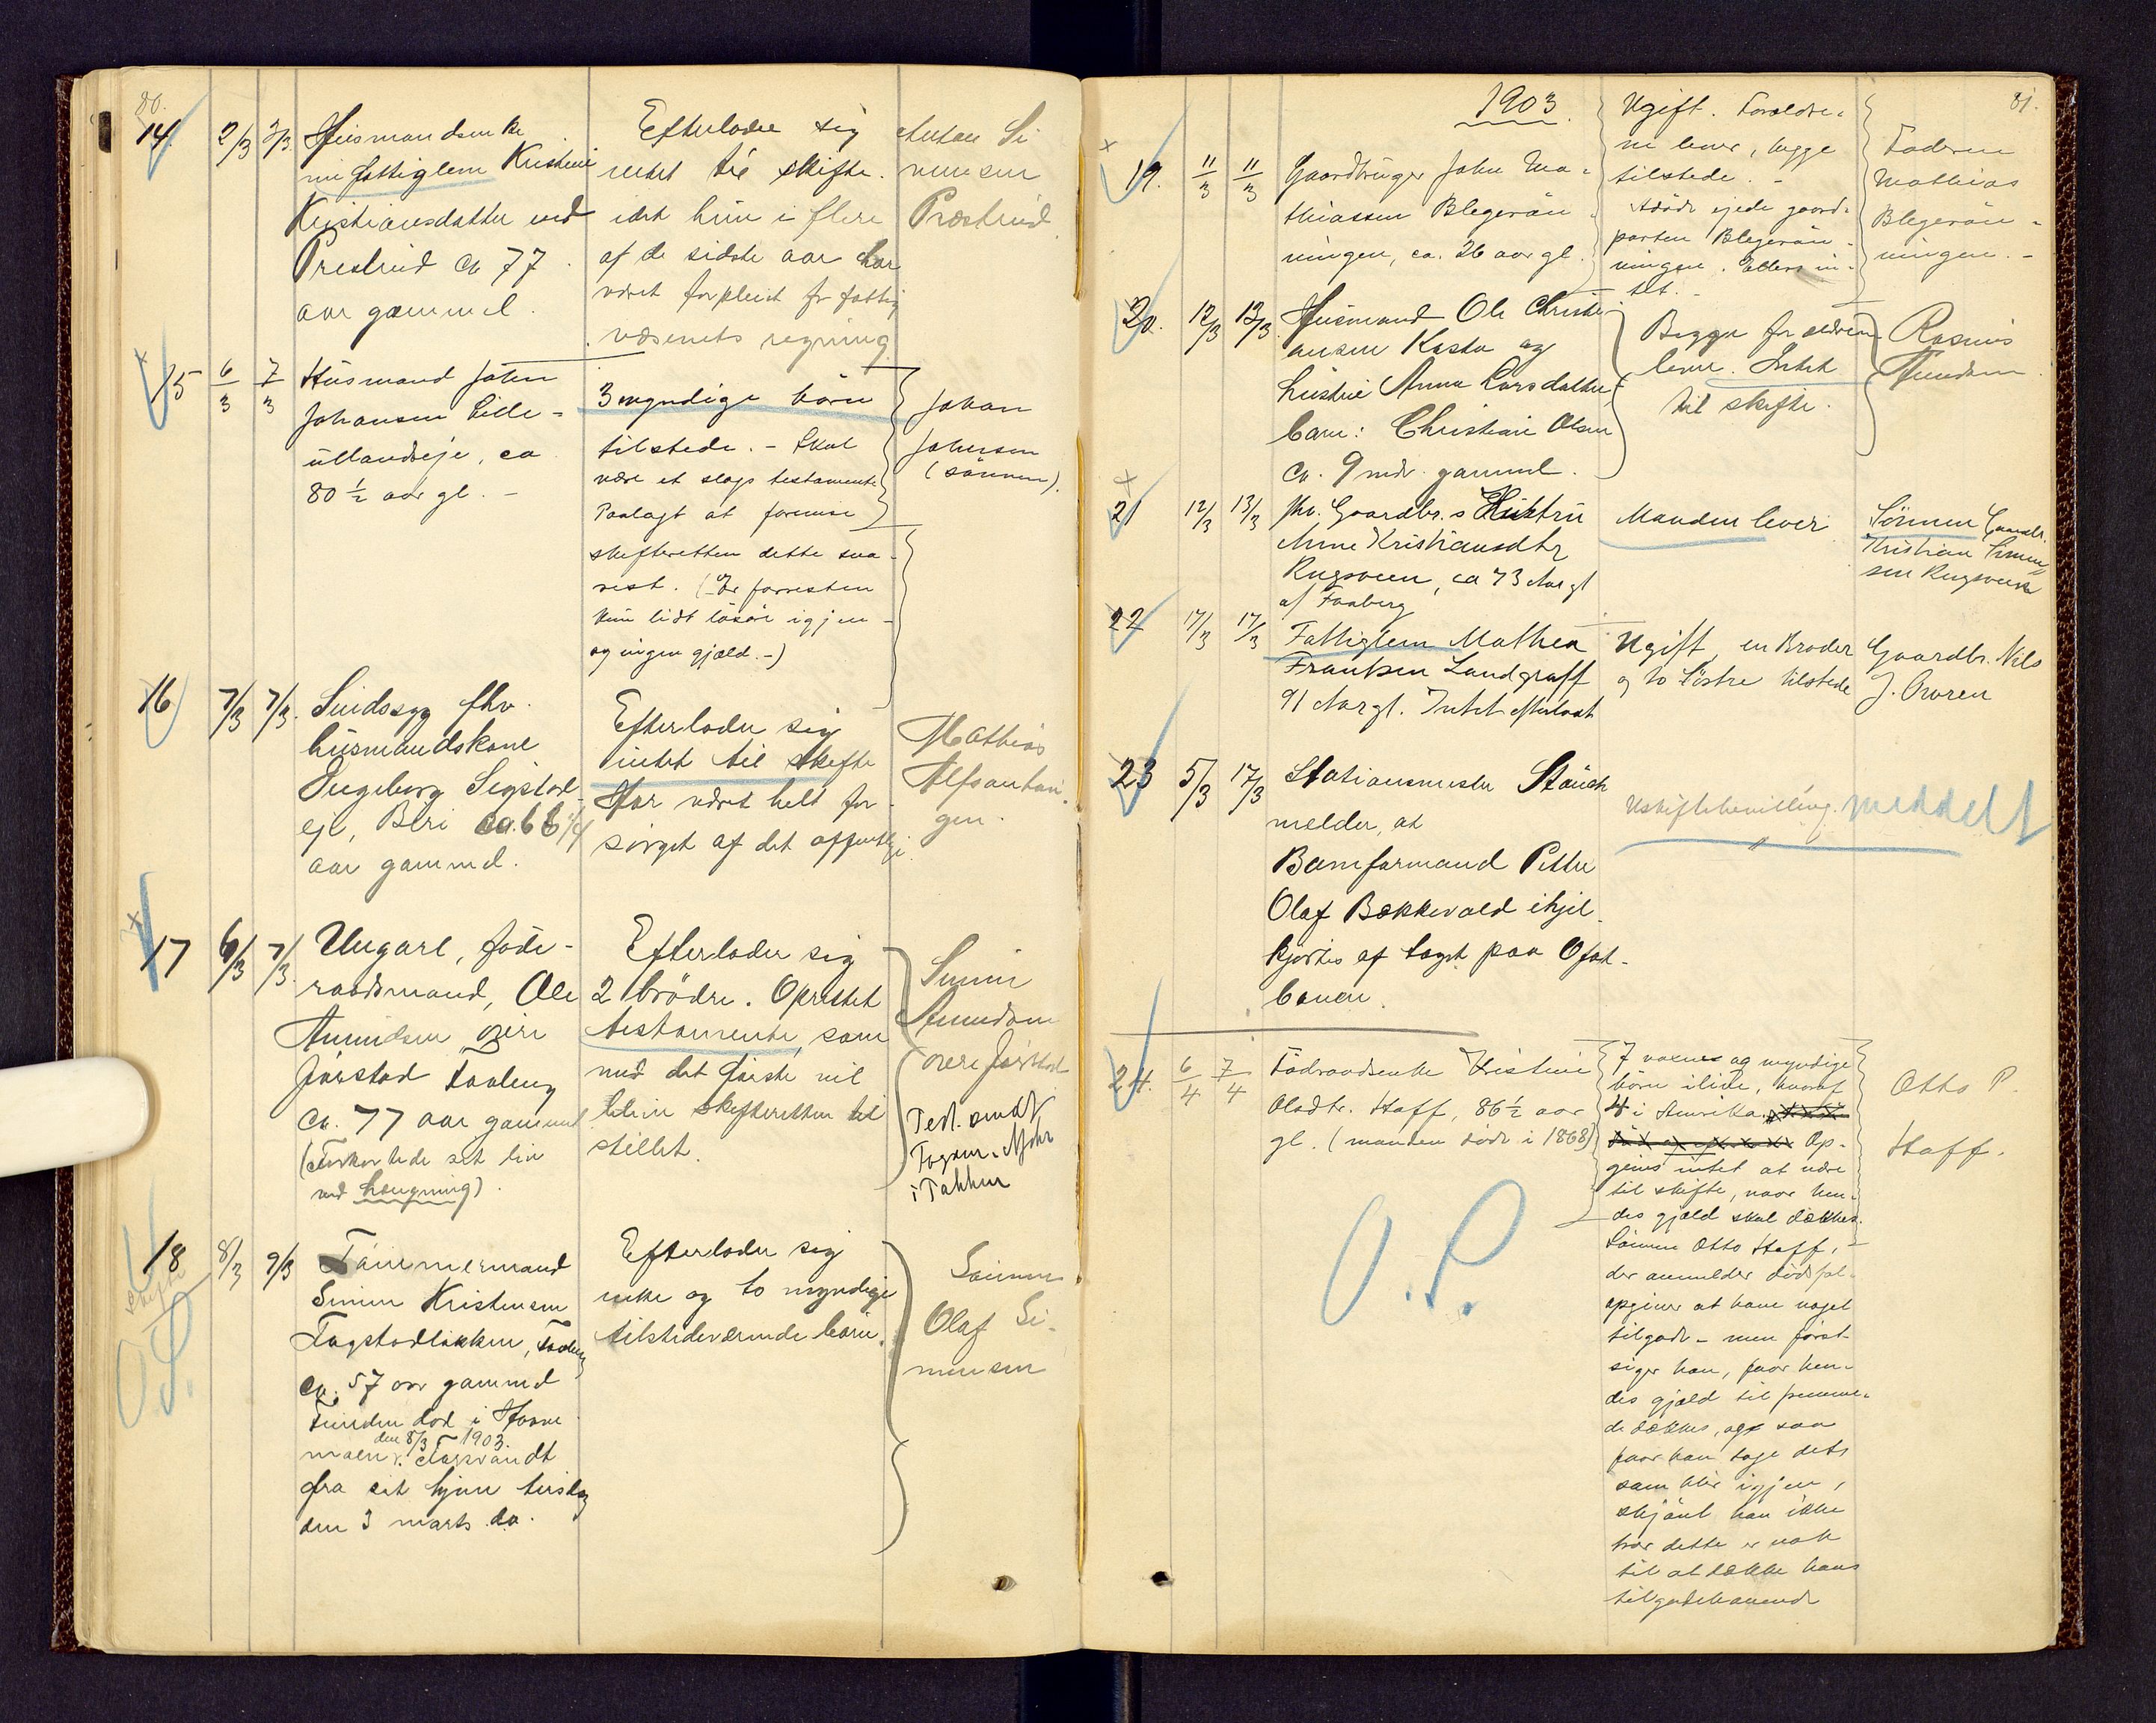 80.
14. 2/3 3/3 Husmandsenke
fattiglem Kristine
Kristiansdatter ved
Prestrud ca 77
aar gammel.
Efterlader sig
intet til skifte.
idet hun i flere
af de sidste aar har
været forpleiet for fattig
væsenets regning
Anton Si
monsen
Præstrud
15 6/3 7/3 Husmand John
Johansen Lille-
ullandseje, ca
80 1/2 aar gl. -
3 myndige børn
tilstede. - Skal
være et slags testamente
Paalagt at forevise
skifteretten dette sna-
rest. (Er forresten
kun lidt løsøre igjen
og ingen gjæld. -)
Johan
Johnsen
(sønnen).
16 7/3 7/3. Sindssyg fhv.
husmandskone
Ingeborg Sigstad-
eje, Biri ca. 66 1/4
aar gammel.
Efterlader sig
intet til skifte
Har været helt for-
sørget af det offentlige.
Mathias
gen.
17 6/3 7/3. Ungarl, føde-
raadsmand, Ole
Amundsen øvre
Jørstad Faaberg
ca. 77 aar gammel
(Forkortede sit liv
ved hængning).
Efterlader sig
2 brødre. Oprettet
testamente, som
med det første vil
blive skifteretten til
stillet.
Simen
Amundsen
øvre Jørstad
Test. sendt
18 8/3 9/3 Tømmermand
Simen Kristensen
Fagstadløkken, Faaberg
ca. 57 aar gammel
Funden død i
den 8/3 1903.
fra sit hjem tirsdag
den 3 marts da.
Efterlader sig
enke og to myndige
tilstedeværende børn.
Sønnen
Olaf Si-
monsen
O.S.
81.
1903.
19. 11/3 11/3 Gaardbruger John Ma-
thiassen Blegerøn-
ningen, ca. 26 aar gl.
Ugift. Forældre-
ne lever, begge
tilstede. -
Afdøde ejede gaard-
parten Blegerøn-
ningen. Ellers in-
tet. -
Faderen
Mathias
Blegerøn-
ningen. -
20. 12/3 13/3 Husmand Ole Christi-
ansen Kasta og
hustrue Anna Larsdatters
barn: Christian Olsen
ca. 9 mdr. gammel.
Begge forældrene
lever. Intet
til skifte.
Rasmus
Amundsen
21 12/3 13/3 fhv. Gaardbr.s Hustru
Anne Kristiansdtr
Rugsveen, ca 73 Aar gl
Manden lever
Sønnen Gaardbr.
Kristian Simen
sen Rugsveen
af Faaberg
22 17/3 17/3 Fattiglem Mathea
Frantsen Landgraff
91 Aar gl. Intet efterladt
Ugift, en Broder
og to Søstre tilstede
Gaardbr. Nils
J. Owren
23 5/3 17/3 Stationsmester Støich
melder, at
Baneformand Petter
Olaf Bækkevold ihjel-
kjørtes af toget paa Ofot-
banen.
Uskiftebevilling. meddelt
24. 6/4 7/4 Føderaadsenke Kristine
Olsdtr. Hoff, 86 1/2 aar
gl. (manden døde i 1868)
7 voksne og myndige
børn ilive, hvoraf
4 i Amerika.
Op-
gives intet at være
til skifte, naar hen-
des gjæld skal dækkes.
Sønnen Otto Hoff, -
der anmelder dødsfal.
opgiver at have noget
tilgode - men først
siger han, faar hen-
des gjæld til fremme-
de dækkes, og saa
faar han tage det,
som blir igjen,
skjønt han ikke
tror dette er nok
til at dække hans
tilgodehavende
Otto P.
Hoff.
O.S.